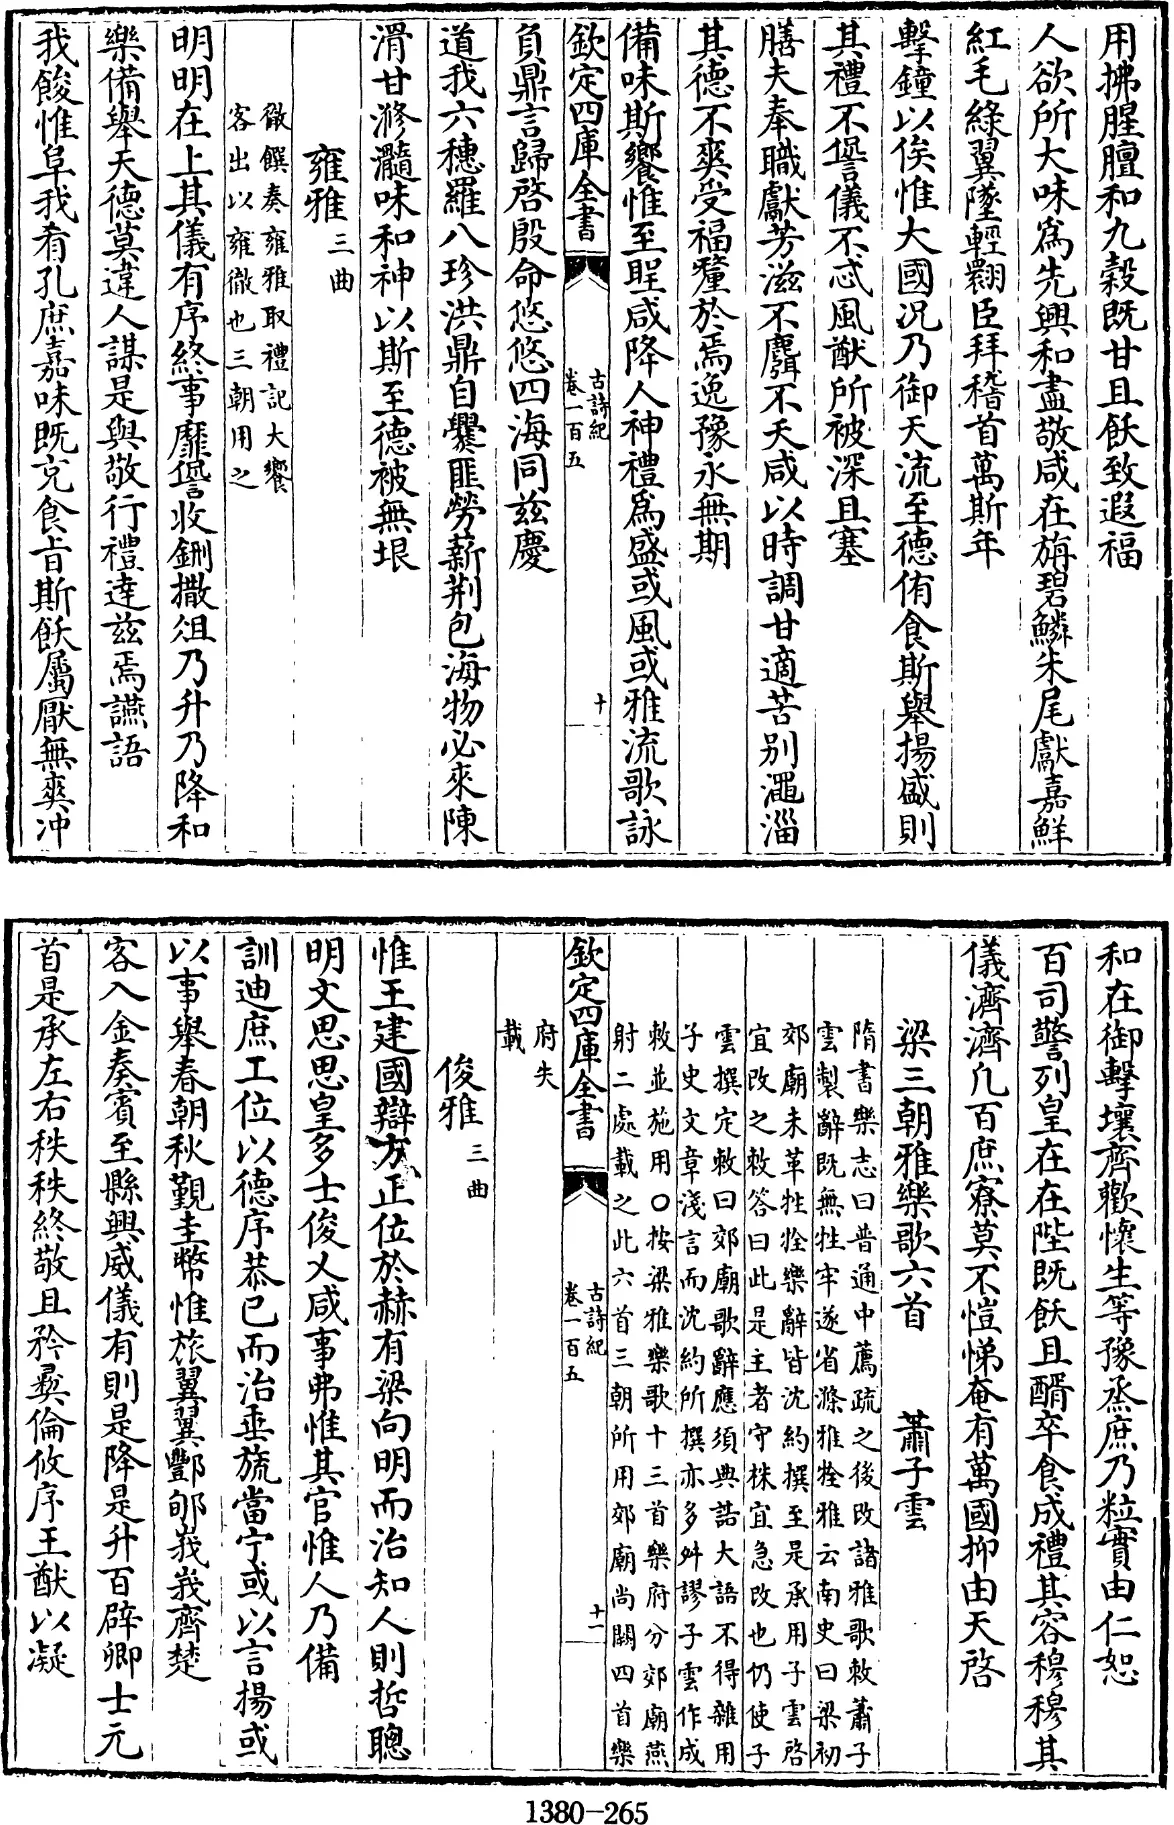 用拂腥膻和九穀既甘且飫致遐福
人欲所大味為先興和盡敬咸在旃碧鱗朱尾獻嘉鮮
紅毛綠翼墜輕翾臣拜稽首萬斯年
擊鐘以俟惟大國況乃御天流至德侑食斯舉揚盛則
其禮不諐儀不忒風猷所被深且塞
膳夫奉職獻芳滋不麛不夭咸以時調甘適苦别澠淄
其德不爽受福釐於焉逸豫永無期
備味斯饗惟至聖咸降人神禮為盛或風或雅流歌詠
欽定四庫全書
古詩紀
卷一百五
十
負鼎言歸啓殷命悠悠四海同兹慶
道我六穗羅八珍洪鼎自爨匪勞薪荆包海物必來陳
滑甘滫瀡味和神以斯至德被無垠
雍雅三曲
徹饌奏雍雅取禮記大饗
客出以雍徹也三朝用之
明明在上其儀有序終事靡諐收鉶撒俎乃升乃降和
樂備舉天德莫違人謀是與敬行禮達兹焉讌語
我餕惟阜我肴孔庶嘉味既充食旨斯飫屬厭無爽冲
和在御擊壤齊歡懷生等豫烝庶乃粒實由仁恕
百司警列皇在在陛既飫且醑卒食成禮其容穆穆其
儀濟濟凡百庶寮莫不愷悌奄有萬國抑由天啓
梁三朝雅樂歌六首 蕭子雲
隋書樂志曰普通中薦疏之後改諸雅歌敕蕭子
雲製辭既無牲牢遂省滌雅牷雅云南史曰梁初
郊廟未革牲牷樂辭皆沈約撰至是承用子雲啓
宜改之敕答曰此是主者守株宜急改也仍使子
雲撰定敕曰郊廟歌辭應須典誥大語不得雜用
子史文章淺言而沈約所撰亦多舛謬子雲作成
敕並施用○按梁雅樂歌十三首樂府分郊廟燕
射二處載之此六首三朝所用郊廟尚闕四首樂
欽定四庫全書
古詩紀
卷一百五
十一
府失
載
俊雅三曲
惟王建國辯方正位於赫有梁向明而治知人則哲聰
明文思思皇多士俊乂咸事弗惟其官惟人乃備
訓迪庶工位以德序恭已而治垂旒當宁或以言揚或
以事舉春朝秋覲圭幣惟旅翼翼酆郇峩峩齊楚
客入金奏賓至縣興威儀有則是降是升百辟卿士元
首是承左右秩秩終敬且矜彝倫攸序王猷以凝
1380-265